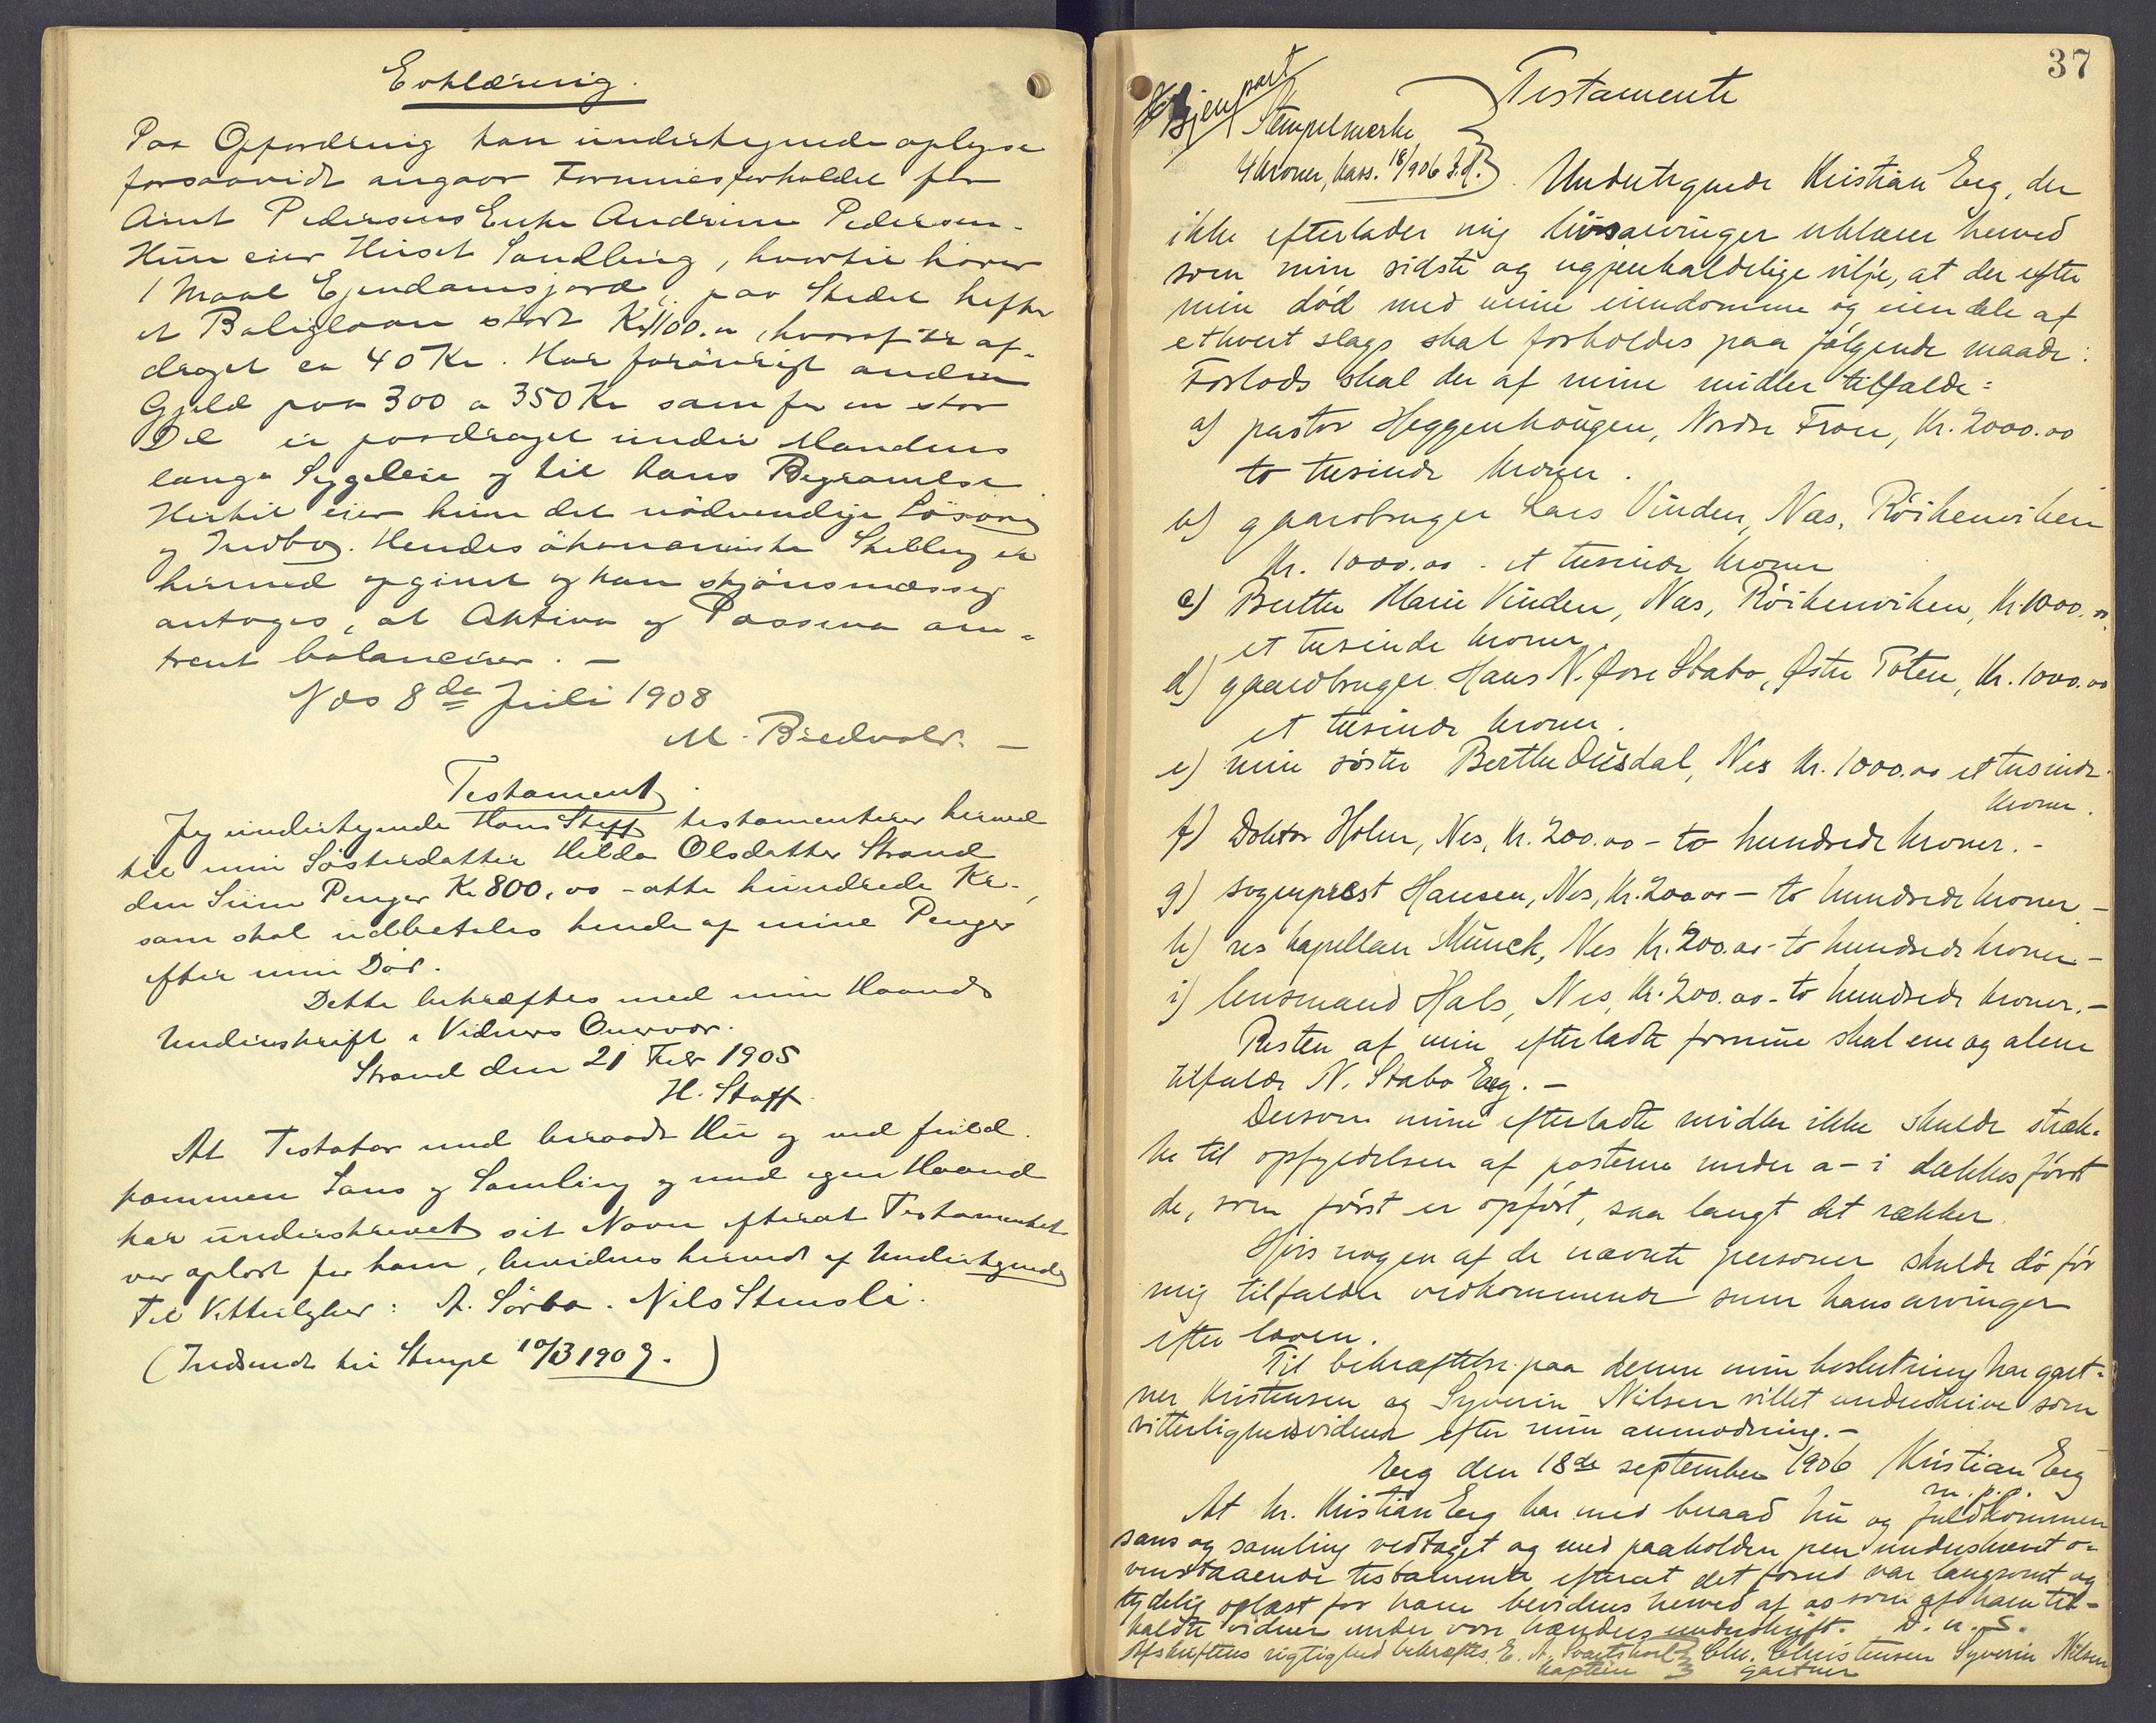 Erklæring.
Paa Opfordring kan undertegnede oplyse
forsaavidt angaar Formuesforholdet for
Arnt Pedersens Enke Andrine Pedersen.
Hun eier Huset Sandling, hvortil hører
1 Maal Ejendomsjord, paa Stedet hefter
et Boliglaan stort Kr 1100.00, hvoraf er af-
draget ca 40 Kr. Har forøvrigt anden
Gjæld paa 300 a 350 Kr som for en stor
Del er paadraget under Mandens
lange Sygeleie og til hans Begravelse
Hertil eier hun det nødvendige Løsøre
og Indbo. Hendes økonomiske Stilling er
hermed opgivet og kan skjønsmæssig
antages, at Aktiva og Passiva om-
trent balancerer. —
Næs 8de Juli 1908
M. Bredvold. —
Testament.
Jeg undertegnede Hans Staff testamenterer herved
til min Søsterdatter Hilda Olsdatter Strand
den Sum Penger Kr 800,00 - otte hundrede Kr.,
som skal udbetales hende af mine Penger
efter min Død.
Dette bekræftes med min Haands
Underskrift i Vidners Overvær.
Strand den 21 Febr 1905
H. Staff.
At Testator med beraad Hu og ved fuld-
kommen Sans og Samling og med egen Haand
har underskrevet sit Navn efterat Testamentet
var oplæst for ham, bevidnes herved af Undertegnede
Til Vitterlighet: A. Sørbo. Nils Stensli.
(Indsendt til Stempl 10/3 1909.)
37
Gjenpart
Testamente
Stempelmerke
4 kroner, kass. 18/9 06
Undertegnede Kristian Eeg, der
ikke efterlader mig livsarvinger erklærer herved
som min sidste og ugjenkaldelige vilje, at der efter
min død med mine eiendomme og eiendele af
ethvert slags skal forholdes paa følgende maade:
Forlods skal der af mine midler tilfalde:
a) pastor Heggenhougen, Nordre Fron, Kr. 2000.00
to tusinde kroner.
b) gaardbruger Lars Vinden, Næs, Röikenviken
Kr. 1000.00 - et tusinde kroner
c) Berthe Marie Vinden, Næs, Röikenviken, Kr. 1000.00
et tusinde kroner.
d) gaardbruger Hans N. Øvre Stabo, Østre Toten, Kr. 1000.00
et tusinde kroner.
e) min søster Berthe Dusdal, Nes Kr. 1000.00 et tusinde
kroner.
f) Doktor Holm, Nes, Kr. 200.00 - to hundrede kroner. -
g) sogneprest Hansen, Nes, Kr. 200.00 - to hundrede kroner -
h) res kapellan Munck, Nes Kr. 200.00 - to hundrede kroner. -
i) lensmand Hals, Nes, Kr. 200.00 - to hundrede kroner. -
Resten af min efterladte formue skal ene og alene
tilfalde N. Stabo Eeg. -
Dersom mine efterladte midler ikke skulde stræk-
ke til opfyldelsen af posterne under a - i dækkes først
de, som først er opført, saa langt det rækker.
Hvis nogen af de nævnte personer skulde dø før
mig tilfalder vedkommende sum hans arvinger
efter loven.
Til bekræftelse paa denne min beslutning har gart-
ner Kristensen og Syverin Nilsen villet underskrive som
vitterlighedsvidner efter min anmodning. -
Eeg den 18de september 1906 Kristian Eeg
m. p. p.
At hr. Kristian Eeg har med beraad hu og fuldkommen
sans og samling vedtaget og med paaholden pen underskrevet o-
venstaaende testamente efterat det forud var langsomt og
tydelig oplæst for ham bevidnes herved af os som af ham til-
kaldte vidner under vore hænders underskrift. D. u. S.
Afskriftens rigtighed bekræftes. E. A. Chr. Christensen Syverin Nilsen
kaptein gartner